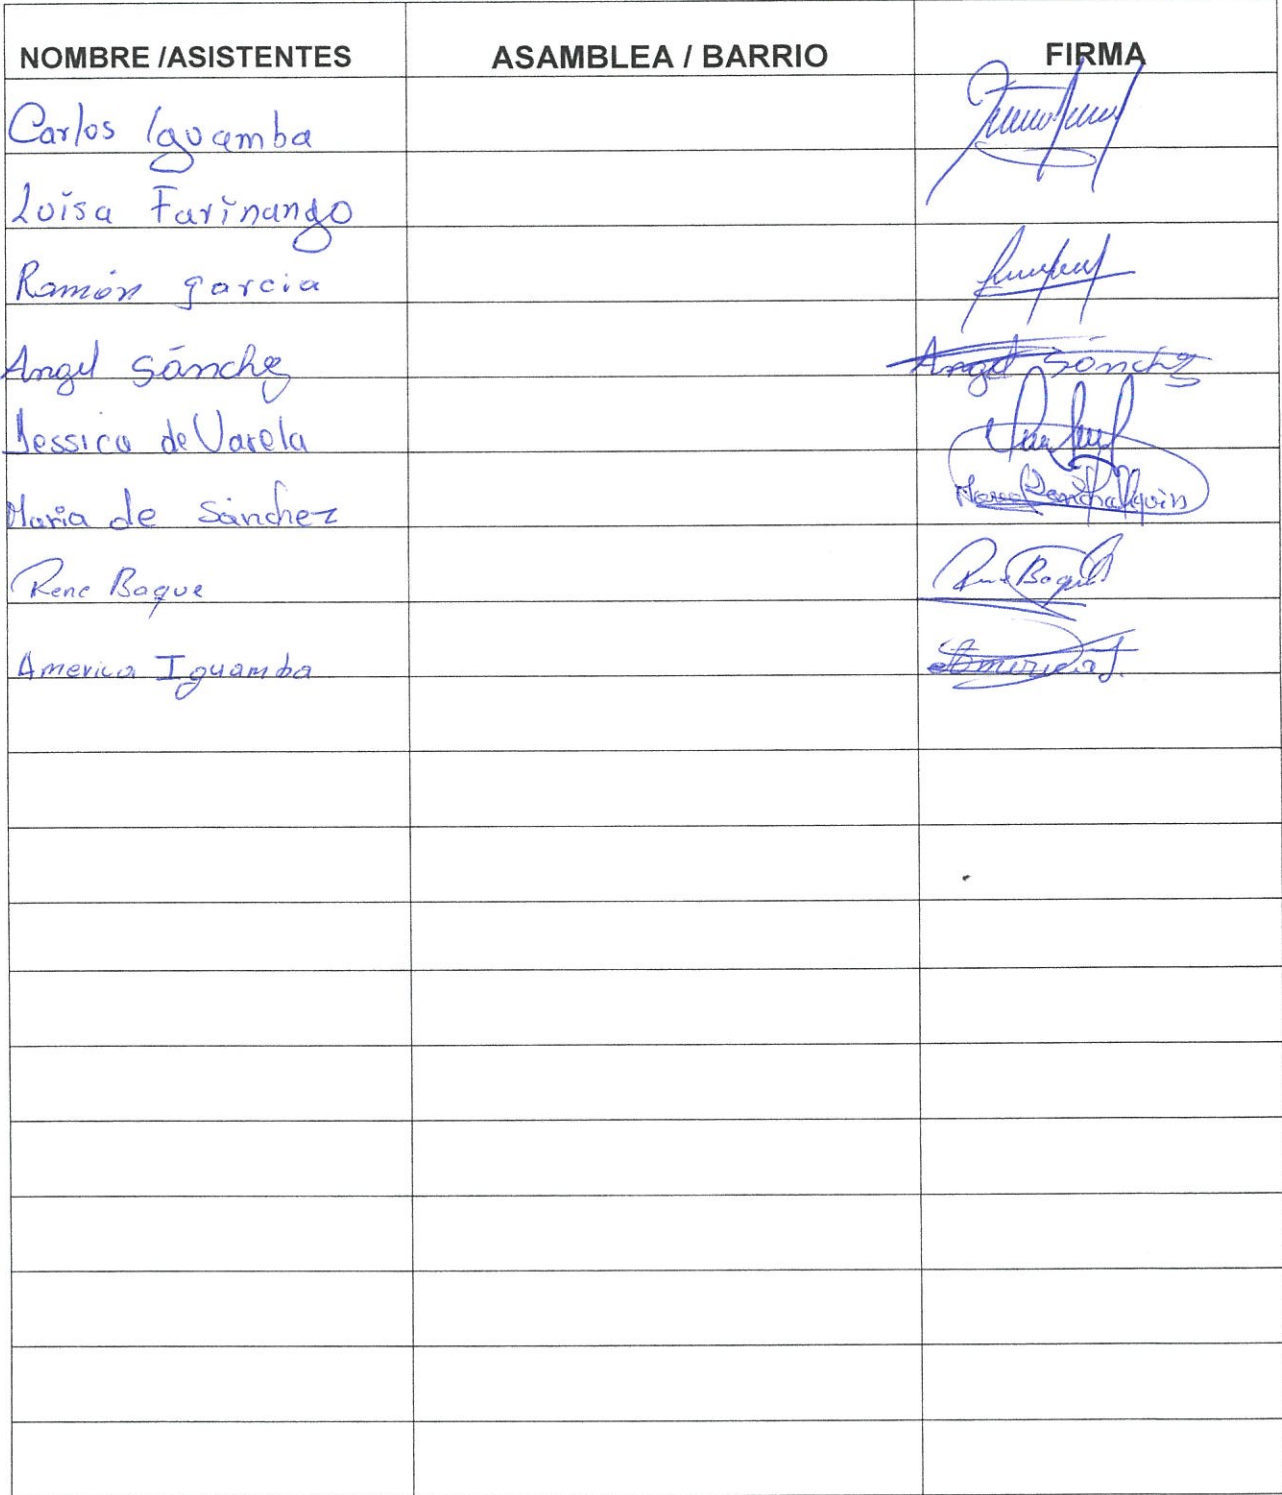 NOMBRE /ASISTENTES ASAMBLEA / BARRIO FIRMA
Carlos Iguamba
Luisa Farinango
Ramón garcia
Angel Sánchez Angel Sánchez
Jessica de Varela
Maria de Sánchez
Rene Baque Rene Baque
America Iguamba America I.